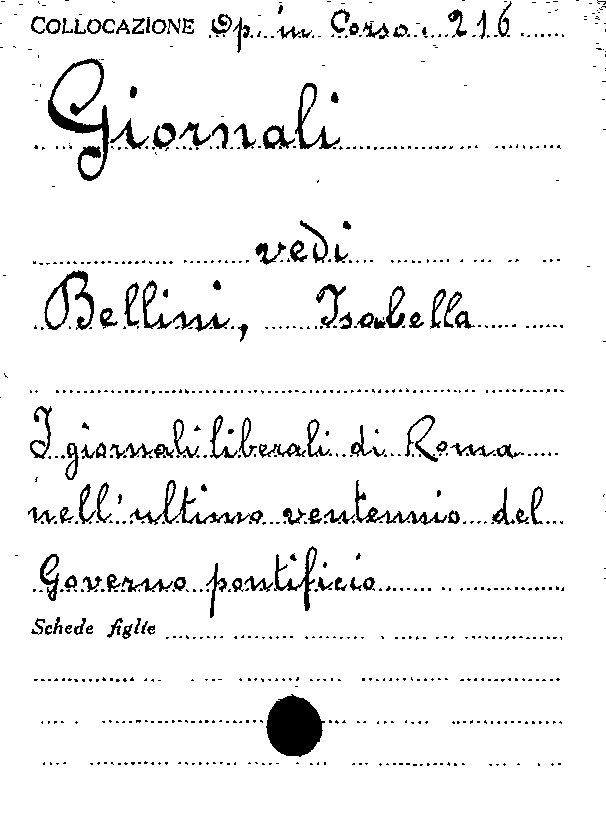 COLLOCAZIONE Op. in Corso. 216
Giornali
vedi
Bellini, Isabella
I giornali liberali di Roma
nell'ultimo ventennio del
Governo pontificio
Schede figlie